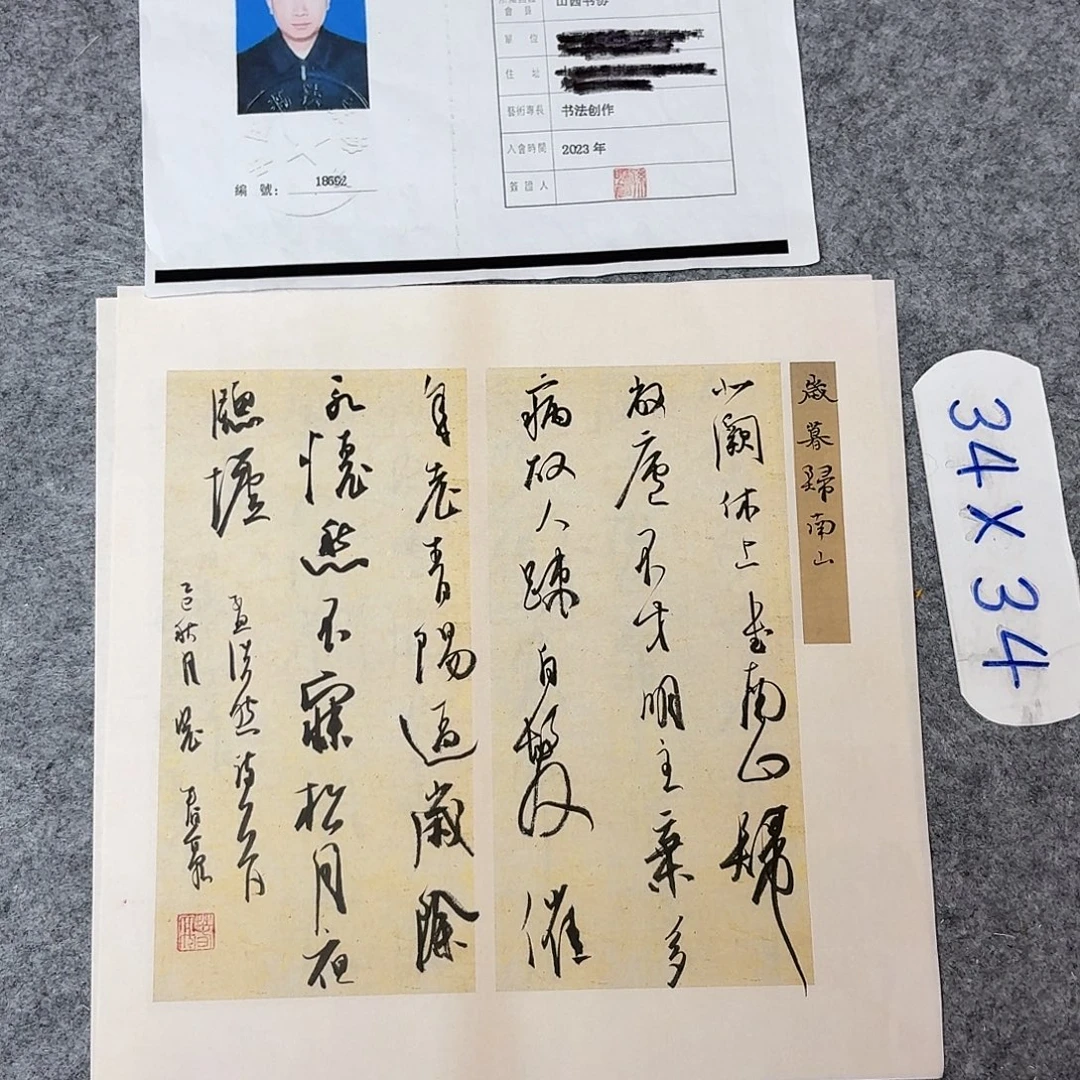 會 員 山西书协
單 位
住 址
藝術專長 书法创作
入會時間 2023 年
簽 證 人
編 號:
34 X 34
歲暮歸南山
北闕休上書南山歸
敝廬不才明主棄多
病故人疎白髮催
年老青陽逼歲除
永懷愁不寐松月夜
牕墟
孟浩然詩
乙巳秋月